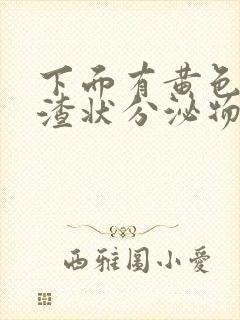 下而有黄色
渣状分泌物
西雅图小爱